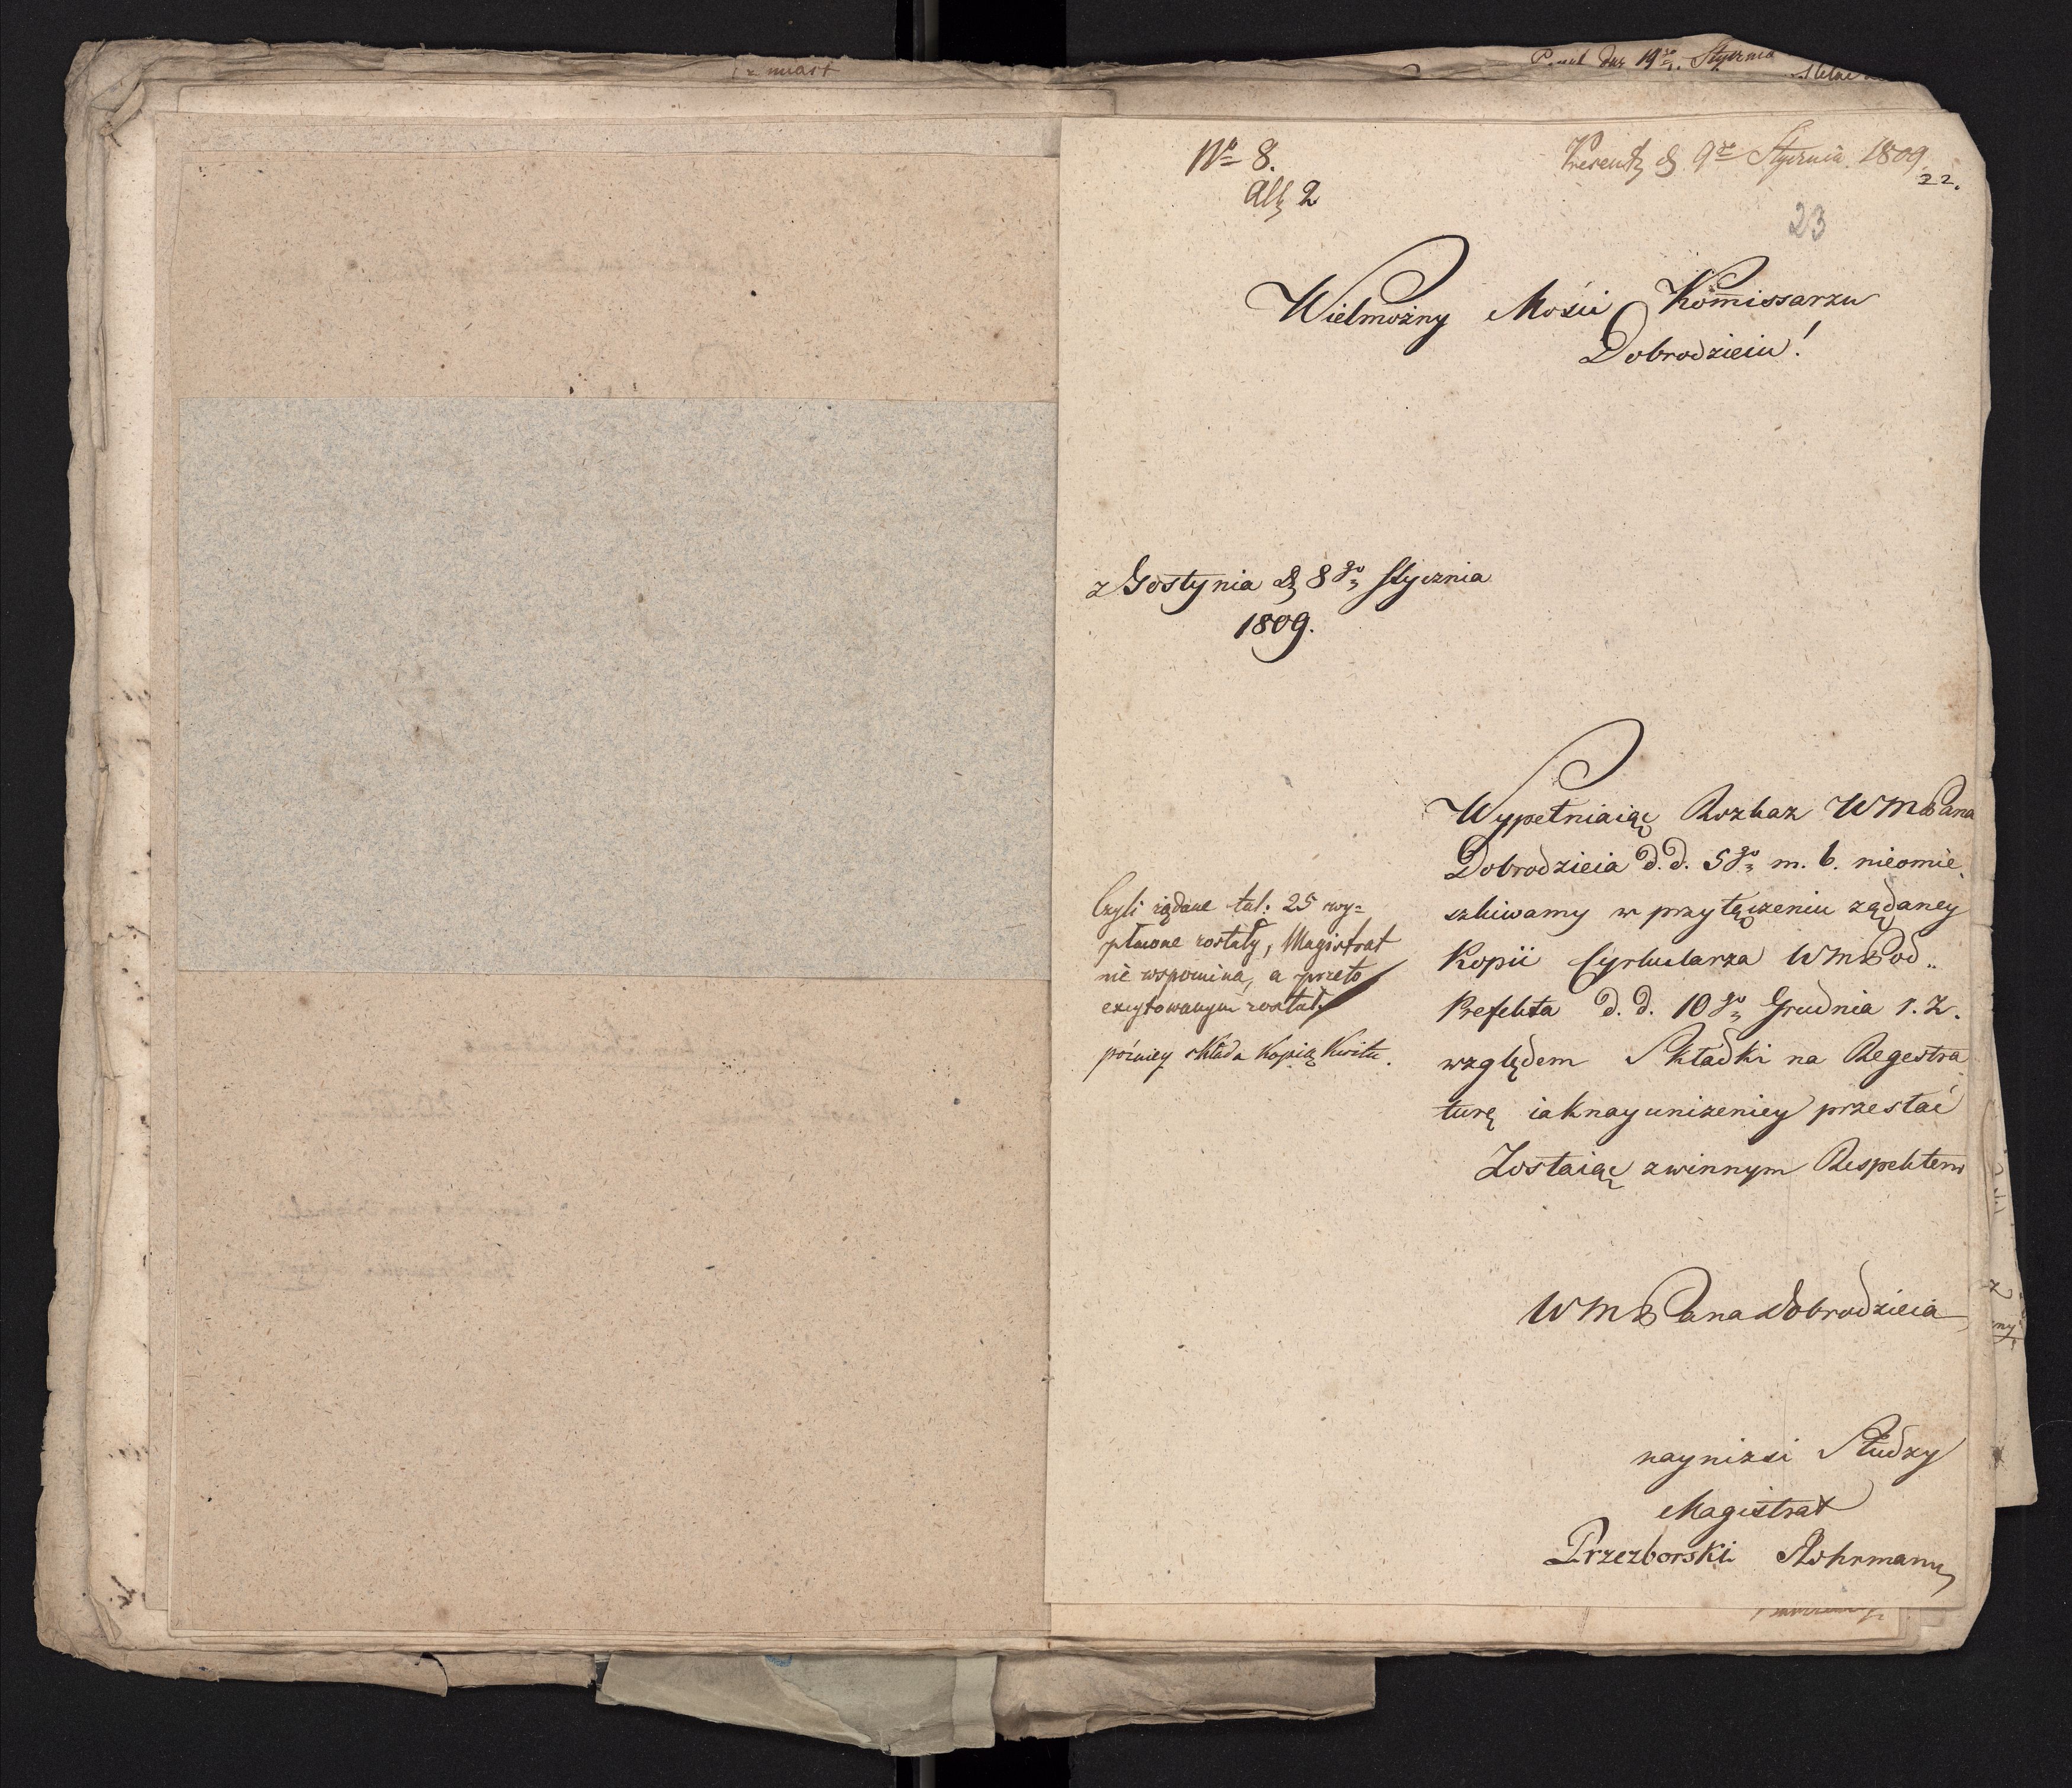 z miast
dnia 19go Stycznia
No 8.
Present d 9go Stycznia 1809
22.
All 2
23
Wielmożny Mości Kommissarzu
Dobrodzieiu!
z Gostynia d 8go Stycznia
1809.
Wypełniaiąc Rozkaz WMPana
Dobrodzieia d.d. 5go m. b. nieomie
szkiwamy w przyłączeniu żądaney
Kopii Cyrkularza WMPod„
Prefekta d.d. 10go Grudnia r. z.
względem Składki na Regestra
turę iaknayuniżeniey przesłać
Zostaiąc z winnym Respektem
Czyli żądane tal: 25 wy=
płacone zostały, Magistrat
nie wspomina, a przeto
excytowanym został
późniey składa Kopię Kwitu.
WMPana Dobrodzieia
nayniżsi Słudzy
Magistrat
Przezborski Rohrmann